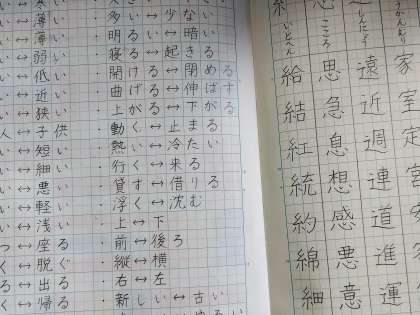 い↔薄い
い↔弱い
い↔低い
い↔近い
い↔狭い
人↔子供
い↔短い
い↔細い
い↔悪い
い↔軽い
い↔浅い
つ↔座る
く↔脱ぐ
る↔出る
く↔帰る
・多い↔少ない
・明るい↔暗い
・寝る↔起きる
・開ける↔閉める
・曲げる↔伸ばす
・上がる↔下がる
・動く↔止まる
・熱い↔冷たい
・行く↔来る
・貸す↔借りる
・浮く↔沈む
・上↔下
・前↔後ろ
・縦↔横
・右↔左
・新しい↔古い
糸 いとへん
給
結
紅
統
約
綿
細
心 こころ
思
急
息
想
感
悪
意
しんにょう
遠
近
週
連
道
進
運
うかんむり
家
室
定